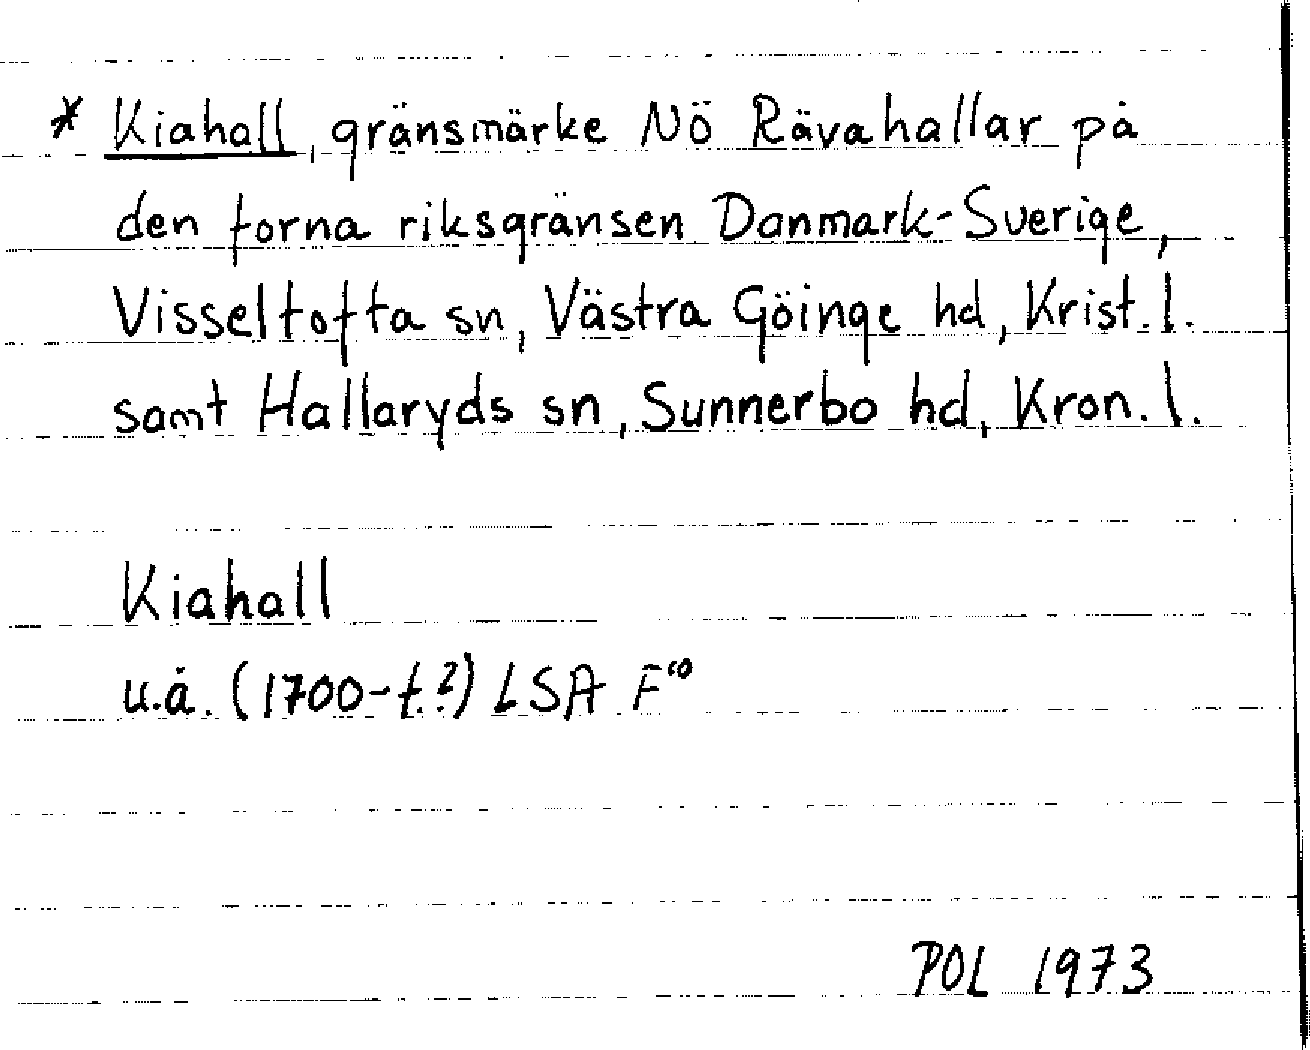 * Kiahall, gränsmärke NÖ Rävahallar på
den forna riksgränsen Danmark-Sverige,
Visseltofta sn, Västra Göinge hd, Krist. l.
samt Hallaryds sn, Sunnerbo hd, Kron. l.
Kiahall
u.å. (1700-t.?) LSA F¹⁰
POL 1973